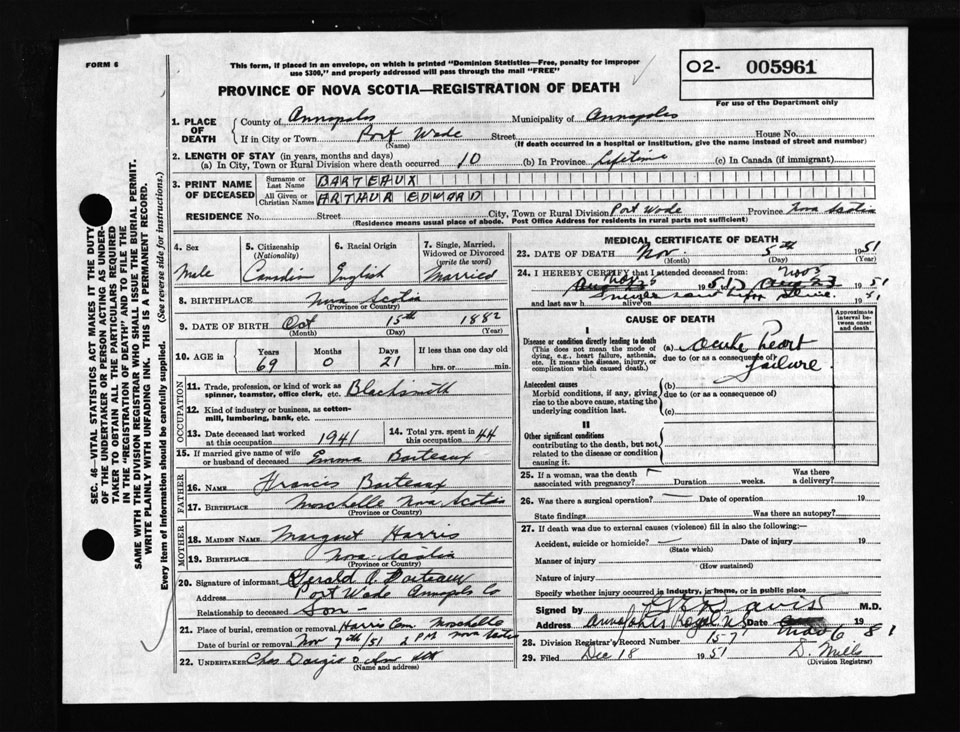 FORM 6
This form, if placed in an envelope, on which is printed "Dominion Statistics—Free, penalty for improper
use $300," and properly addressed will pass through the mail "FREE"
O2- 005961
For use of the Department only
PROVINCE OF NOVA SCOTIA—REGISTRATION OF DEATH
1. PLACE OF DEATH
County of Annapolis Municipality of Annapolis
If in City or Town Port Wade Street House No.
(Name) (If death occurred in a hospital or institution, give the name instead of street and number)
2. LENGTH OF STAY (in years, months and days)
(a) In City, Town or Rural Division where death occurred 10 (b) In Province Lifetime (c) In Canada (if immigrant)
3. PRINT NAME OF DECEASED
Surname or Last Name BARTEAUX
All Given or Christian Names ARTHUR EDWARD
RESIDENCE No. Street City, Town or Rural Division Port Wade Province Nova Scotia
(Residence means usual place of abode. Post Office Address for residents in rural parts not sufficient)
4. Sex Male
5. Citizenship (Nationality) Canadian
6. Racial Origin English
7. Single, Married, Widowed or Divorced (write the word) Married
8. BIRTHPLACE Nova Scotia
(Province or Country)
9. DATE OF BIRTH Oct 15th 1882
(Month) (Day) (Year)
10. AGE in Years 69 Months 0 Days 21 If less than one day old hrs. or min.
OCCUPATION
11. Trade, profession, or kind of work as spinner, teamster, office clerk, etc. Blacksmith
12. Kind of industry or business, as cotton-mill, lumbering, bank, etc.
13. Date deceased last worked at this occupation 1941
14. Total yrs. spent in this occupation 44
15. If married give name of wife or husband of deceased Emma Barteaux
FATHER
16. NAME Francis Barteaux
17. BIRTHPLACE Moschelle Nova Scotia
(Province or Country)
MOTHER
18. MAIDEN NAME Margaret Harris
19. BIRTHPLACE Nova Scotia
(Province or Country)
20. Signature of informant Gerald A. Barteaux
Address Port Wade Annapolis Co
Relationship to deceased Son
21. Place of burial, cremation or removal Harris Cem. Moschelle
Date of burial or removal Nov 7th/51 2 PM Nova Scotia
22. UNDERTAKER Chas
(Name and address)
MEDICAL CERTIFICATE OF DEATH
23. DATE OF DEATH Nov 5th 1951
(Month) (Day) (Year)
24. I HEREBY CERTIFY that I attended deceased from:
Nov 5 Aug 23 1951
and last saw h alive on 19
I never saw him alive.
CAUSE OF DEATH
Approximate interval between onset and death
I
Disease or condition directly leading to death
(This does not mean the mode of dying, e.g., heart failure, asthenia, etc. It means the disease, injury, or complication which caused death.)
(a) Acute Heart
due to (or as a consequence of) Failure.
Antecedent causes
Morbid conditions, if any, giving rise to the above cause, stating the underlying condition last.
(b)
due to (or as a consequence of)
(c)
II
Other significant conditions
contributing to the death, but not related to the disease or condition causing it.
25. If a woman, was the death associated with pregnancy? Duration weeks. Was there a delivery?
26. Was there a surgical operation? Date of operation 19
State findings Was there an autopsy?
27. If death was due to external causes (violence) fill in also the following:—
Accident, suicide or homicide? Date of injury 19
(State which)
Manner of injury
(How sustained)
Nature of injury
Specify whether injury occurred in industry, in home, or in public place
Signed by Davis M.D.
Address Annapolis Royal NS Date Nov 6 19
28. Division Registrar's Record Number 157
29. Filed Dec 18 1951 D. Mills
(Division Registrar)
SEC. 46—VITAL STATISTICS ACT MAKES IT THE DUTY
OF THE UNDERTAKER OR PERSON ACTING AS UNDER-
TAKER TO OBTAIN ALL THE PARTICULARS REQUIRED
IN THE "REGISTRATION OF DEATH" AND TO FILE THE
SAME WITH THE DIVISION REGISTRAR WHO SHALL ISSUE THE BURIAL PERMIT.
WRITE PLAINLY WITH UNFADING INK. THIS IS A PERMANENT RECORD.
Every item of information should be carefully supplied. (See reverse side for instructions.)